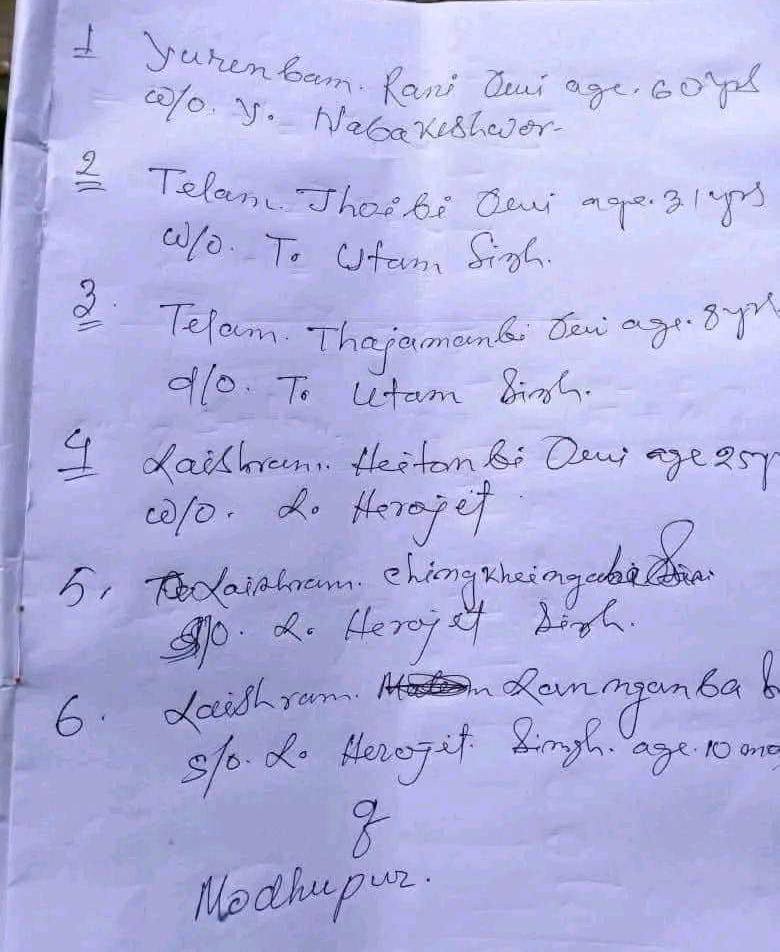 1 Yurenbam. Rani Devi age. 60 yrs
w/o. Y. Nabakeshwor
2 Telam. Thoibi Devi age. 31 yrs
w/o. T. Utam Singh.
3. Telam. Thajamanbi Devi age. 8 yrs
d/o. T. Utam Singh.
4 Laishram. Heitonbi Devi age 25 y
w/o. L. Herojit
5. Laishram. Chingkheinganba
S/o. L. Herojit Singh.
6. Laishram. Langanba
S/o. L. Herojit Singh. age. 10 mo
of
Modhupur.